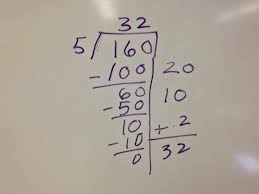 32
5)160
-100 20
60 10
-50
10 + 2
-10 32
0